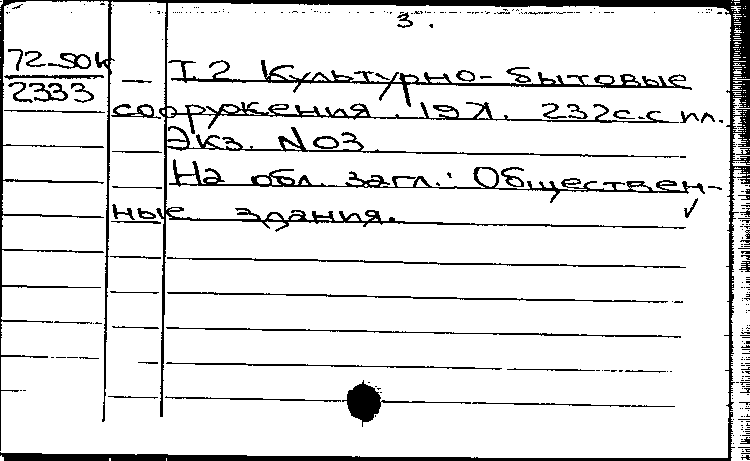 3.
72-50к
2333
— Т.2 Культурно-бытовые
сооружения. 197. 232с.с пл.
Экз. №03.
На обл. загл.: Обществен-
ные здания.